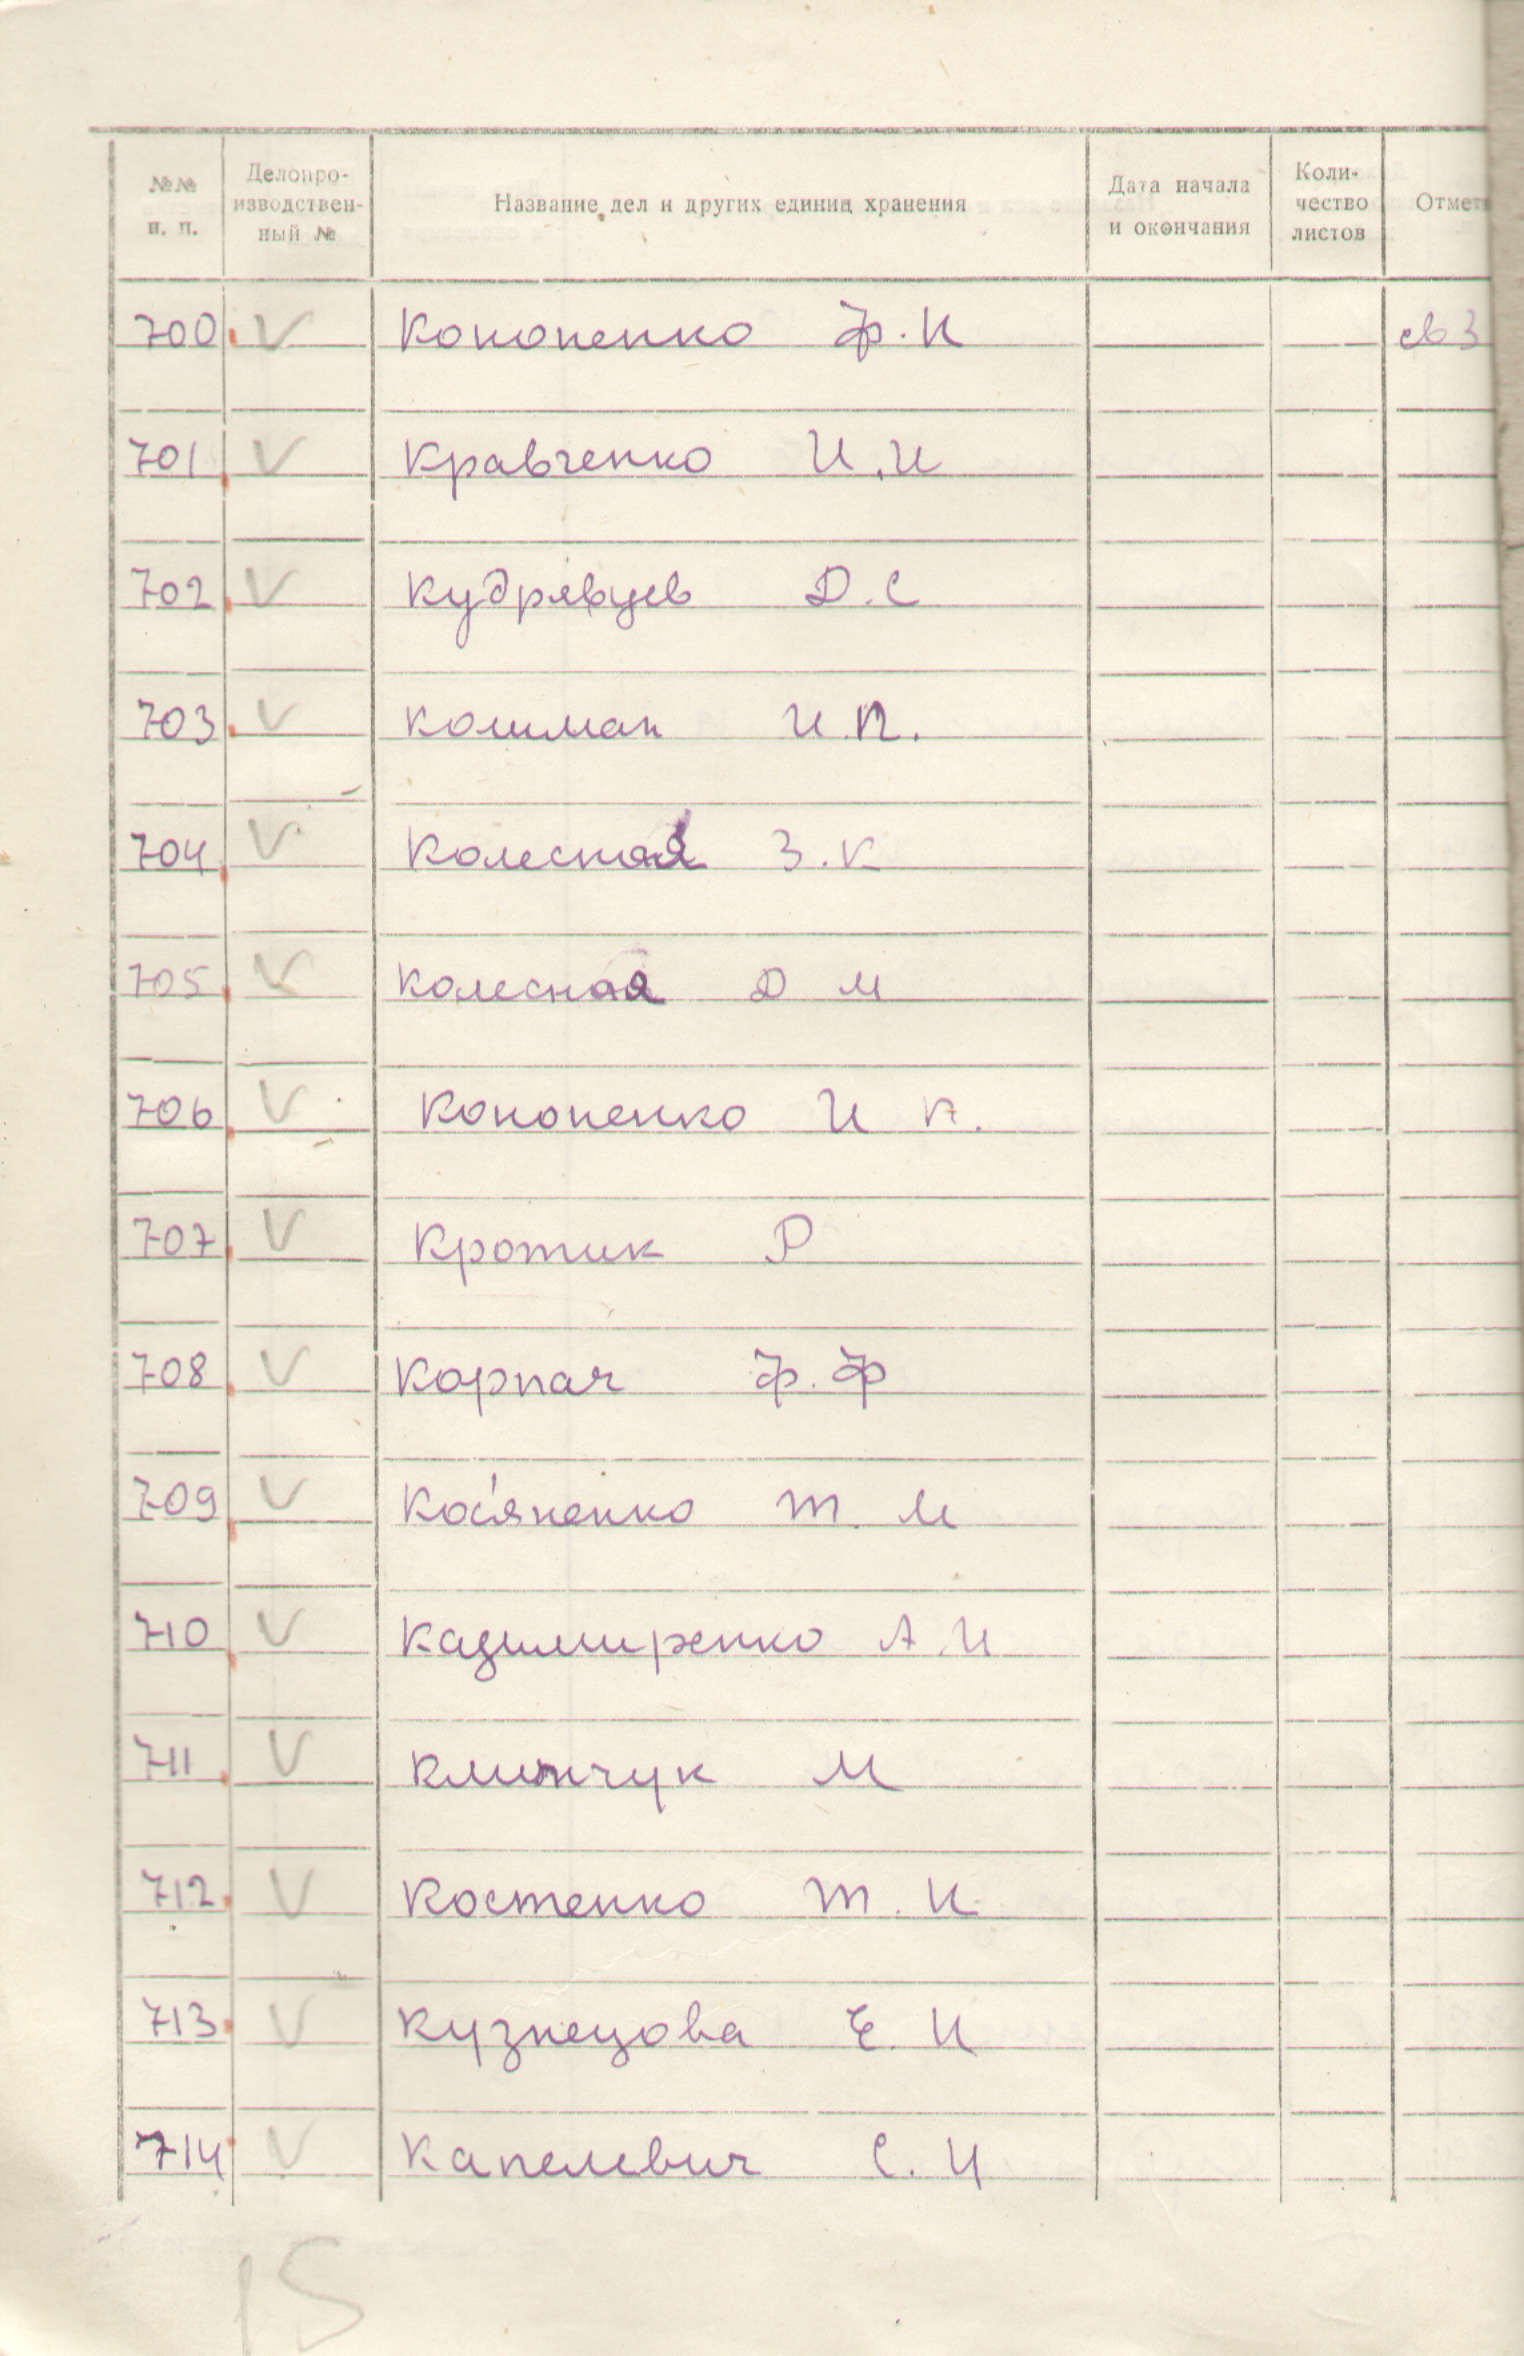 №№ п. п.
Делопро-
изводствен-
ный №
Название дел и других единиц хранения
Дата начала
и окончания
Коли-
чество
листов
Отмет
700. V Кононенко Ф.К св 3
701. V Кравченко И.И
702. V Кудрявцев Д.С
703. V Кошман И.П.
704. V Колесная З.К
705. V Колесная Д М
706. V Кононенко И К.
707. V Кротик Р
708. V Корпач Ф.Ф
709. V Кос'яненко Т. М
710. V Казимиренко А.И
711. V Климчук М
712. V Костенко Т. К
713. V Кузнецова Е. К
714. V Капелевич С. И
15